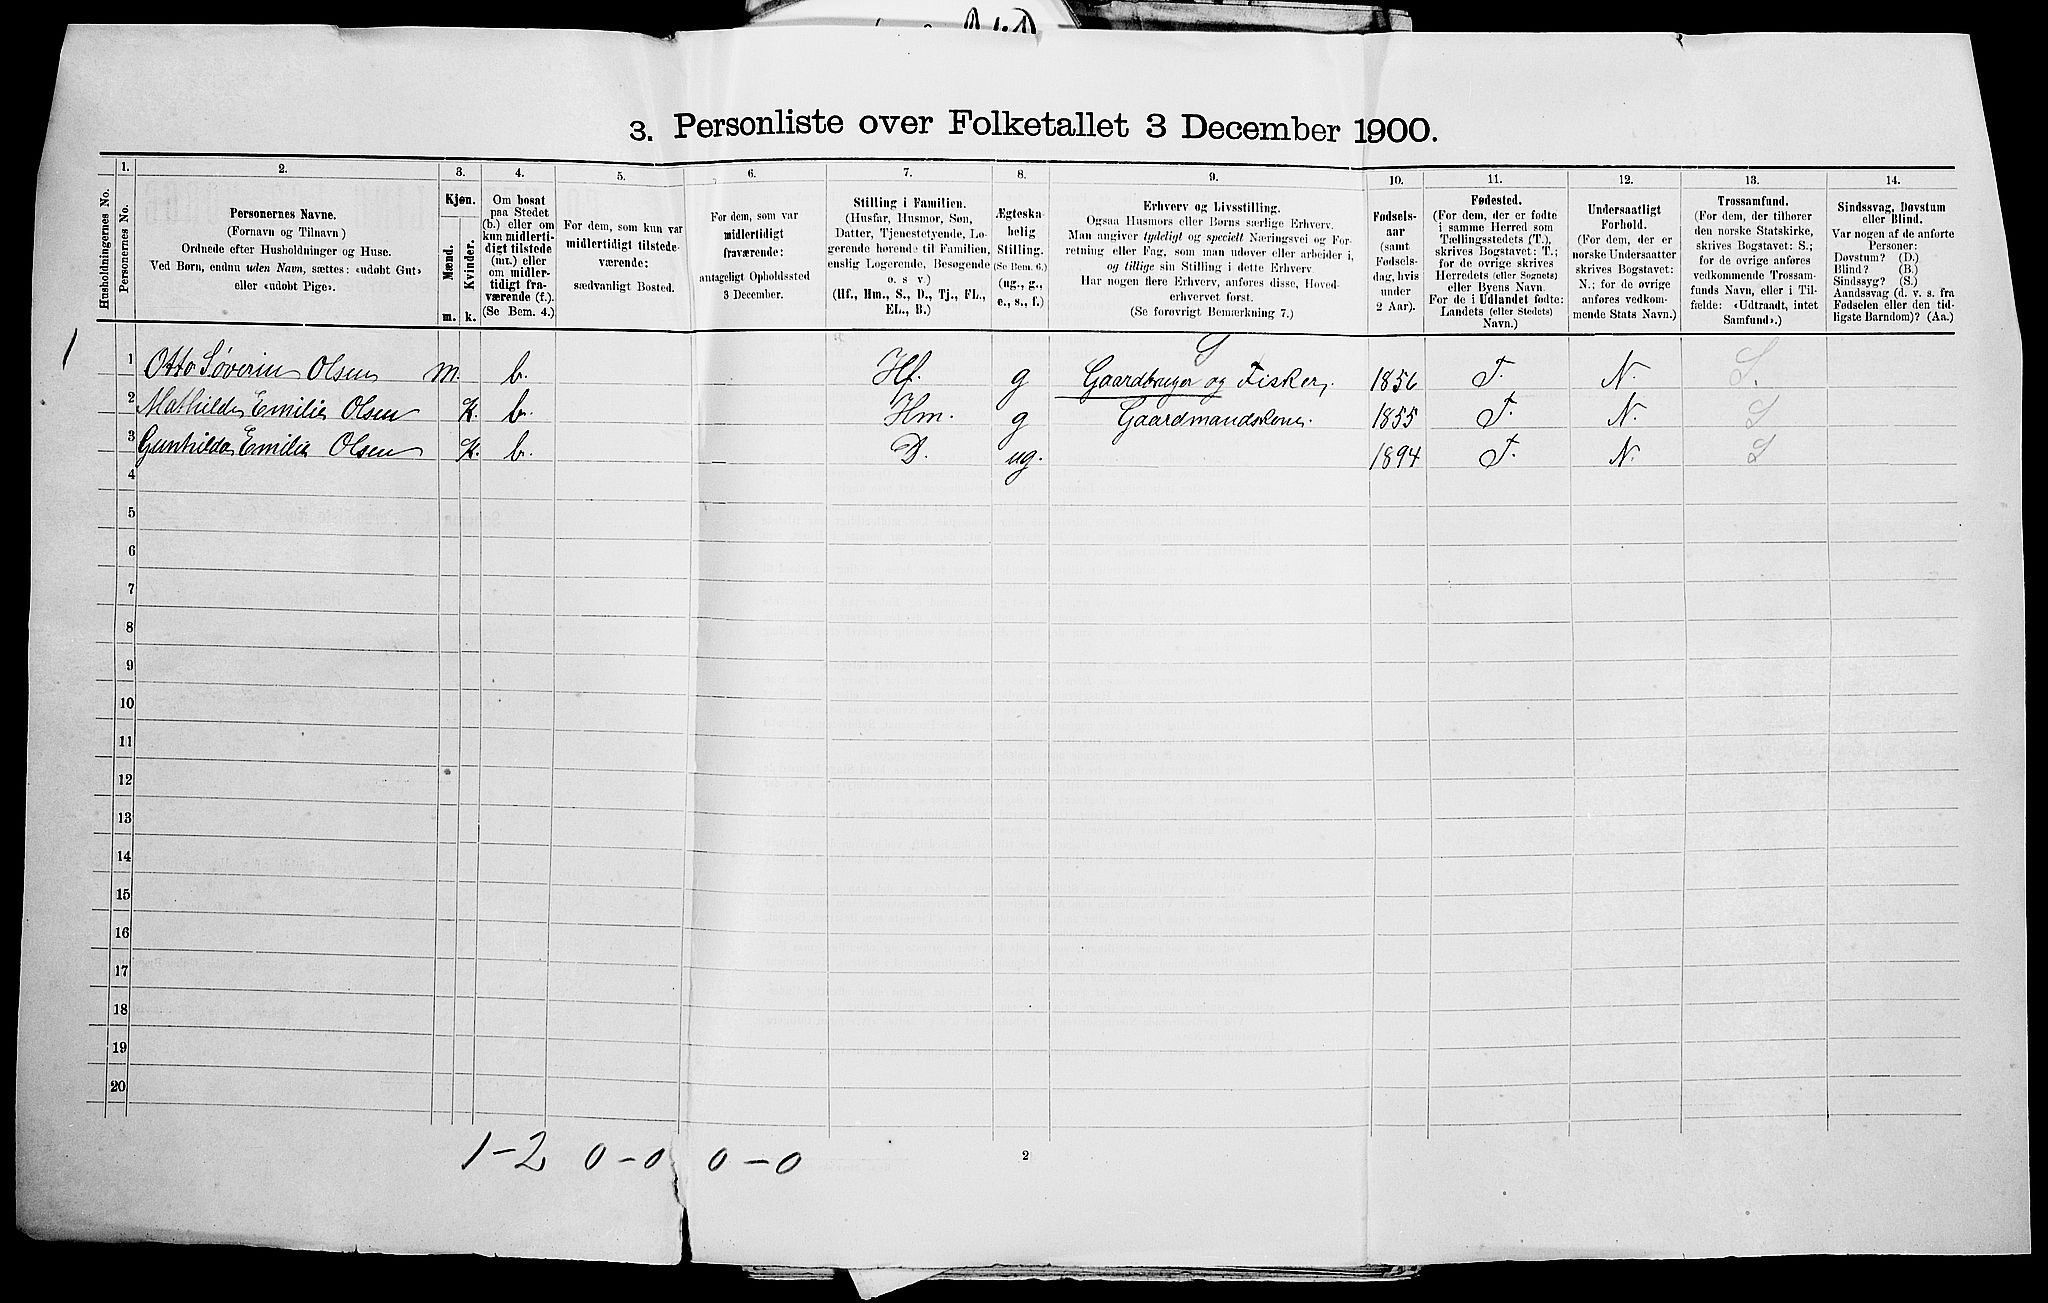 3. Personliste over Folketallet 3 December 1900.
Husholdningernes No.
1.
Personernes No.
2.
Personernes Navne.
(Fornavn og Tilnavn)
Ordnede efter Husholdninger og Huse.
Ved Børn, endnu uden Navn, sættes: «udøbt Gut»
eller «udøbt Pige».
3.
Kjøn.
Mænd.
Kvinder.
m. k.
4.
Om bosat
paa Stedet
(b.) eller om
kun midlerti-
digt tilstede
(mt.) eller
om midler-
tidigt fra-
værende (f.).
(Se Bem. 4.)
5.
For dem, som kun var
midlertidigt tilstede-
værende:
sædvanligt Bosted.
6.
For dem, som var
midlertidigt
fraværende:
antageligt Opholdssted
3 December.
7.
Stilling i Familien.
(Husfar, Husmor, Søn,
Datter, Tjenestetyende, Lo-
gerende hørende til Familien,
enslig Logerende, Besøgende
o. s v.)
(Hf., Hm., S., D., Tj., FL.,
EL., B.)
8.
Ægteska-
belig
Stilling.
(Se Bem. 6.)
(ug., g.,
e., s., f.)
9.
Erhverv og Livsstilling.
Ogsaa Husmors eller Børns særlige Erhverv.
Man angiver tydeligt og specielt Næringsvei og For-
retning eller Fag, som man udøver eller arbeider i,
og tillige sin Stilling i dette Erhverv.
Har nogen flere Erhverv, anføres disse, Hoved-
erhvervet først.
(Se forøvrigt Bemærkning 7.)
10.
Fødsels-
aar
(samt
Fødsels-
dag, hvis
under
2 Aar).
11.
Fødested.
(For dem, der er fødte
i samme Herred som
Tællingsstedets (T.),
skrives Bogstavet: T.;
for de øvrige skrives
Herredets (eller Sognets)
eller Byens Navn.
For de i Udlandet fødte:
Landets (eller Stedets)
Navn.)
12.
Undersaatligt
Forhold.
(For dem, der er
norske Undersaatter
skrives Bogstavet:
N.; for de øvrige
anføres vedkom-
mende Stats Navn.)
13.
Trossamfund.
(For dem, der tilhører
den norske Statskirke,
skrives Bogstavet: S.;
for de øvrige anføres
vedkommende Trossam-
funds Navn, eller i Til-
fælde: «Udtraadt, intet
Samfund».)
14.
Sindssvag, Døvstum
eller Blind.
Var nogen af de anførte
Personer:
Døvstum? (D.)
Blind? (B.)
Sindssyg? (S.)
Aandssvag (d. v. s. fra
Fødselen eller den tid-
ligste Barndom)? (Aa.)
S
1 1 Otto Søverin Olsen m. b. Hf. g Gaardbruger og Fisker, 1856 T. N. S.
2 Mathilde Emilie Olsen k. b. Hm. g Gaardmandskone. 1855 T. N. S
3 Gunhilda Emilie Olsen k. b. D. ug. 1894 T. N. S
4
5
6
7
8
9
10
11
12
13
14
15
16
17
18
19
20
1-2 0-0 0-0
2